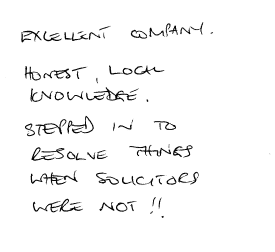 EXCELLENT COMPANY.
HONEST, LOCAL
KNOWLEDGE.
STEPPED IN TO
RESOLVE THINGS
WHEN SOLICITORS
WERE NOT !!